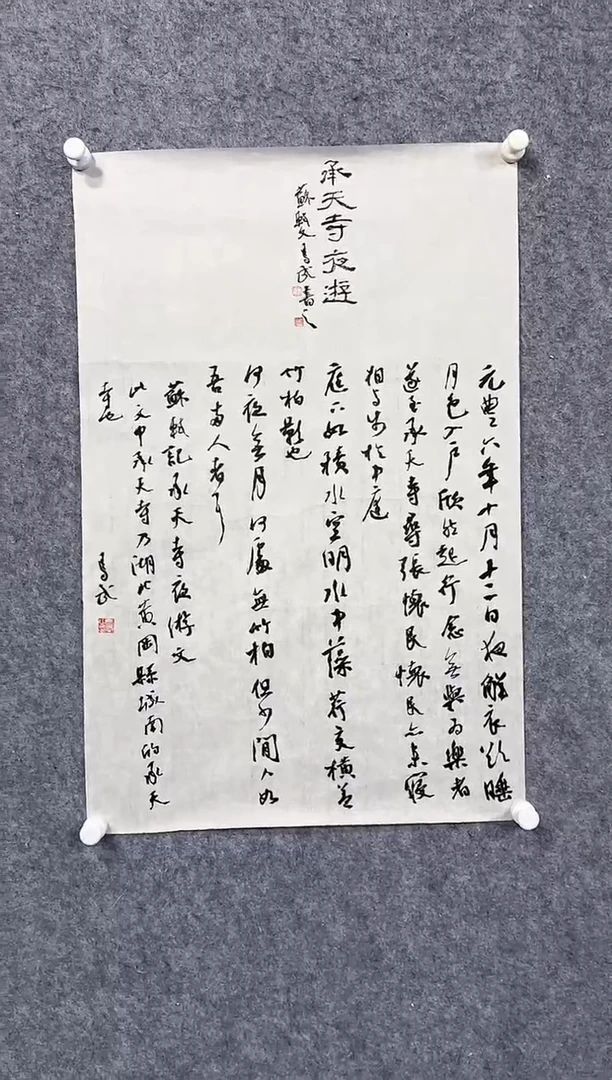 承天寺夜遊
蘇軾文 㐂武書之
元豐六年十月十二日夜解衣欲睡
月色入户欣然起行念無與為樂者
遂至承天寺尋張懷民懷民亦未寢
相與步於中庭
庭下如積水空明水中藻荇交橫蓋
竹柏影也
何夜無月何處無竹柏但少閒人如
吾兩人者耳
蘇軾記承天寺夜游文
此文中承天寺乃湖北黃岡縣城南的承天
寺也